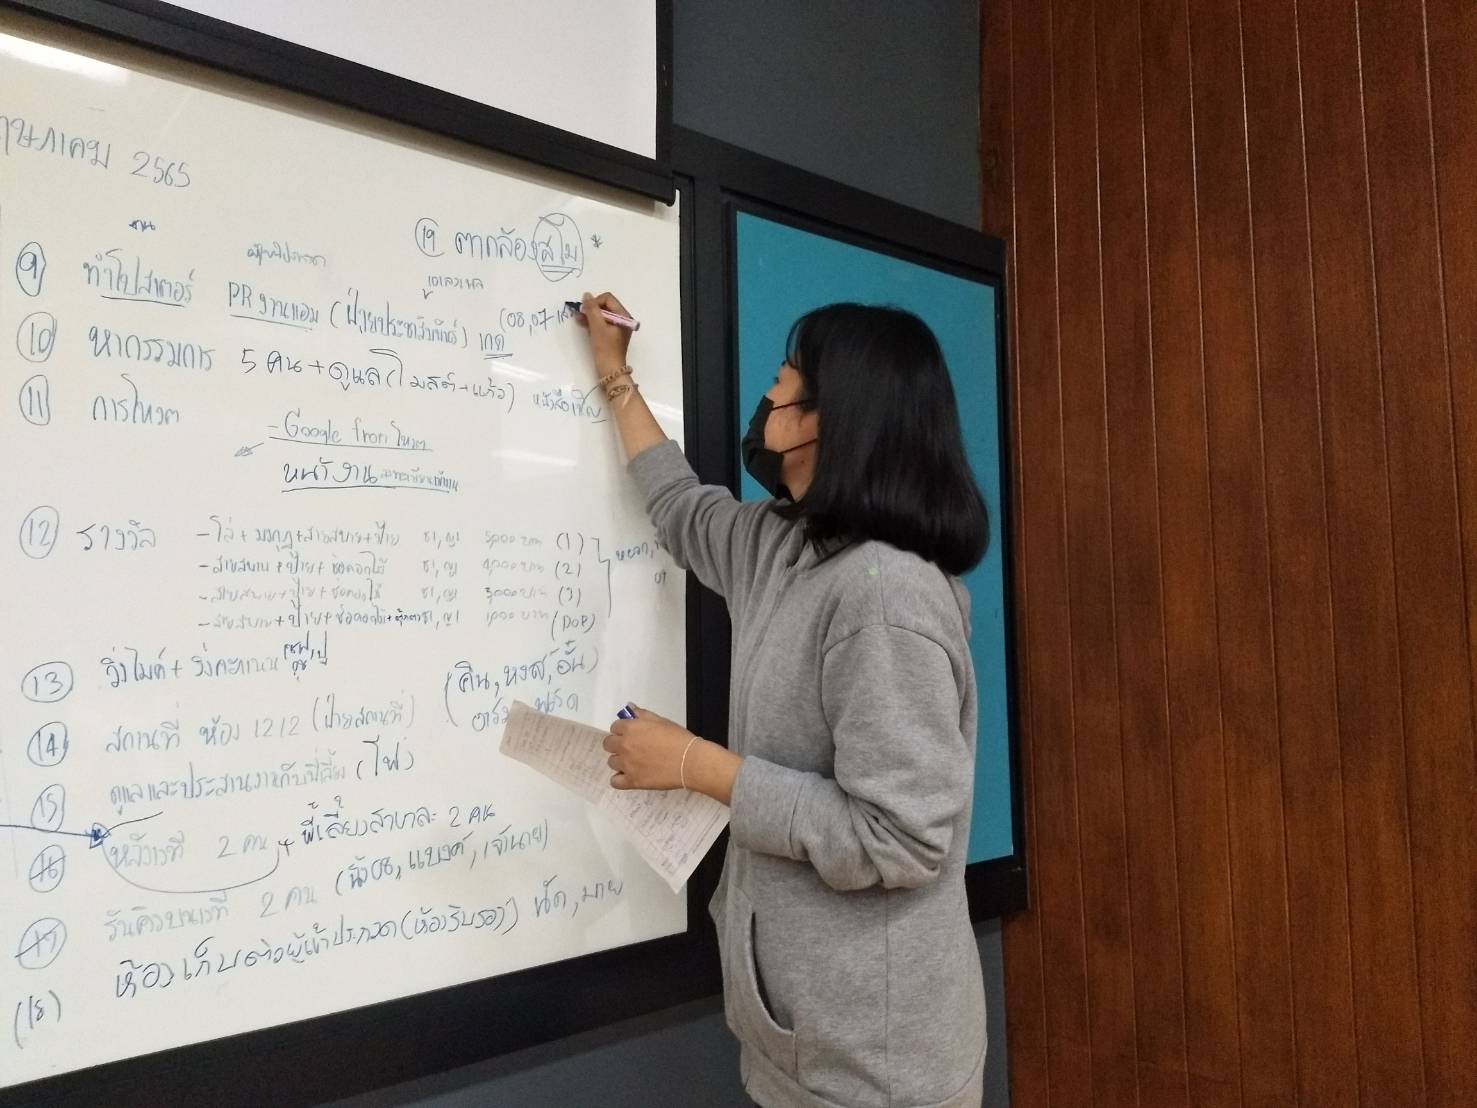 ษภาคม 2565
⑲ ตากล้องสโม
⑨ ทำโปสเตอร์ PR งานแอม (ฝ่ายประชาสัมพันธ์) เกด
⑩ หากรรมการ 5 คน + ดูแล (ไมล์ + แก้ว) หนังสือเชิญ
⑪ การโหวต
- Google from โหวต
หน้างาน
⑫ รางวัล
- โล่ + มงกุฎ + สายสะพาย + ป้าย ช, ญ 5,000 บาท (1)
- สายสะพาย + ป้าย + ช่อดอกไม้ ช, ญ 4,000 บาท (2)
- สายสะพาย + ป้าย + ช่อดอกไม้ ช, ญ 3,000 บาท (3)
- สายสะพาย + ป้าย + ช่อดอกไม้ + ตุ๊กตา ช, ญ 1,000 บาท (POP)
⑬ วิ่งไมค์ + วิ่งคะแนน
⑭ สถานที่ ห้อง 1212 (ฝ่ายสถานที่) (คิน, หงส์, อั้น)
⑮ ดูแลและประสานงานกับพี่เลี้ยง (โฟ)
⑯ หลังเวที 2 คน + พี่เลี้ยงสาขาละ 2 คน
⑰ รันคิวบนเวที 2 คน (แบงค์, เจ้านาย)
(18) ห้องเก็บตัวผู้เข้าประกวด (ห้องรับรอง) นัด, มาย